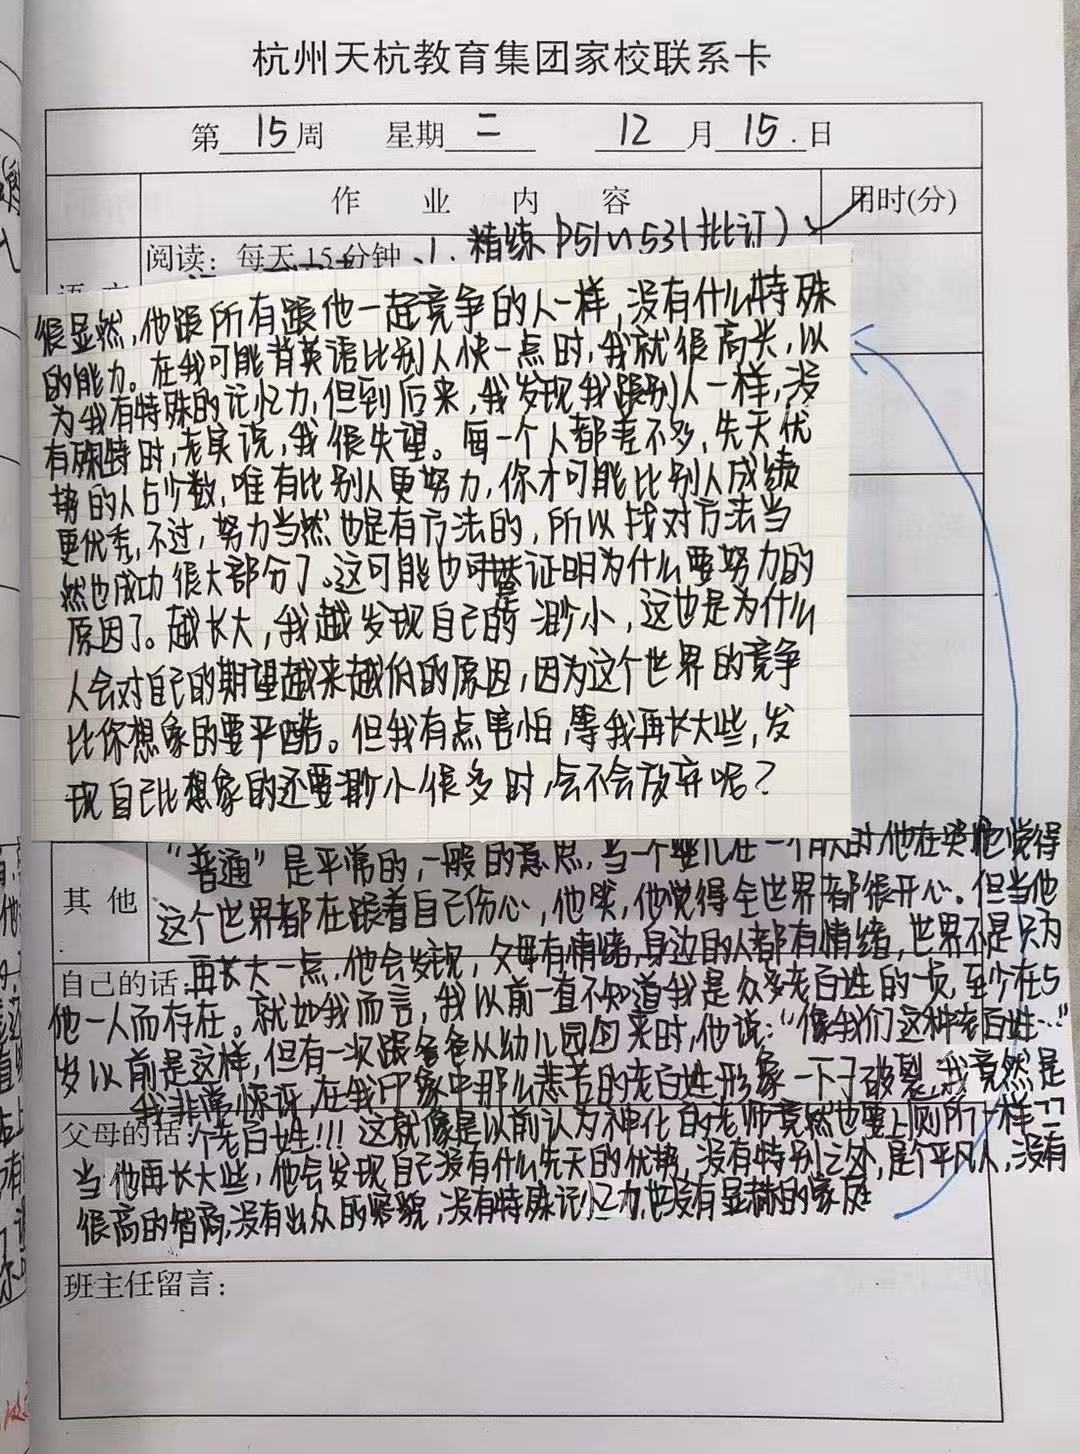 杭州天杭教育集团家校联系卡
第 15 周 星期 二 12 月 15 . 日
作 业 内 容 用时(分)
阅读：每天 15 分钟 1. 精练 P51~53(批订)
很显然，他跟所有跟他一起竞争的人一样，没有什么特殊
的能力。在我可能背英语比别人快一点时，我就很高兴，以
为我有特殊的记忆力，但到后来，我发现我跟别人一样，没
有殊特时，老实说，我很失望。每一个人都差不多，先天优
势的人占少数，唯有比别人更努力，你才可能比别人成绩
更优秀，不过，努力当然也是有方法的，所以找对方法当
然也成功很大部分了。这可能也可证明为什么要努力的
原因了。越长大，我越发现自己的渺小，这也是为什么
人会对自己的期望越来越低的原因，因为这个世界的竞争
比你想象的要严酷。但我有点害怕，等我再长大些，发
现自己比想象的还要渺小很多时，会不会放弃呢？
其 他
"普通"是平常的，一般的意思，当一个婴儿在一个人时他在哭他觉得
这个世界都在跟着自己伤心，他笑，他觉得全世界都很开心。但当他
自己的话：再长大一点，他会发现，父母有情绪，身边的人都有情绪，世界不是只为
他一人而存在。就如我而言，我以前一直不知道我是众多老百姓的一员，至少在5
岁以前是这样，但有一次跟爸爸从幼儿园回来时，他说："像我们这种老百姓…"
我非常惊讶，在我印象中那么悲苦的老百姓形象一下子破裂，我竟然是
父母的话：个老百姓!!! 这就像是以前认为神化的老师竟然也要上厕所一样
当他再长大些，他会发现自己没有什么先天的优势，没有特别之处，是个平凡人，没有
很高的智商，没有出众的容貌，没有特殊记忆力也没有显赫的家庭
班主任留言：